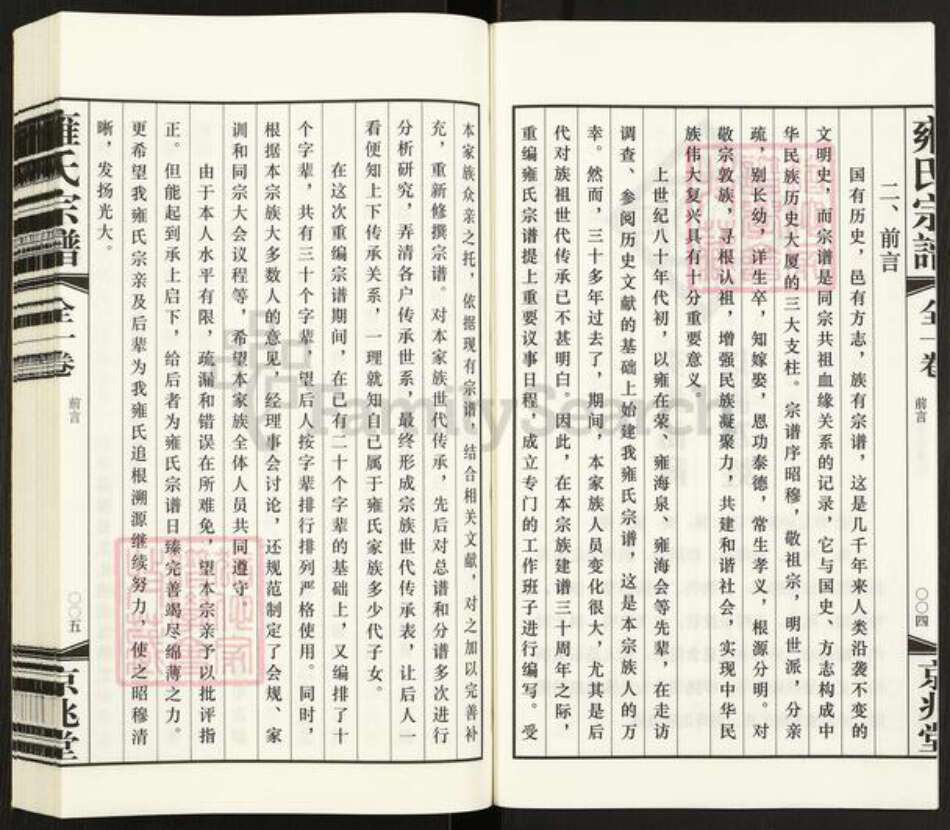 雍氏宗譜
全一卷
前言
〇〇四
京兆堂
二、前言
国有历史，邑有方志，族有宗谱，这是几千年来人类沿袭不变的
文明史，而宗谱是同宗共祖血缘关系的记录，它与国史、方志构成中
华民族历史大厦的三大支柱。宗谱序昭穆，敬祖宗，明世派，分亲
疏，别长幼，详生卒，知嫁娶，恩功泰德，常生孝义，根源分明。对
敬宗敦族，寻根认祖，增强民族凝聚力，共建和谐社会，实现中华民
族伟大复兴具有十分重要意义。
上世纪八十年代初，以雍在荣、雍海泉、雍海会等先辈，在走访
调查、参阅历史文献的基础上始建我雍氏宗谱，这是本宗族人的万
幸。然而，三十多年过去了，期间，本家族人员变化很大，尤其是后
代对族祖世代传承已不甚明白，因此，在本宗族建谱三十周年之际，
重编雍氏宗谱提上重要议事日程，成立专门的工作班子进行编写。受
本家族众亲之托，依据现有宗谱，结合相关文献，对之加以完善补
充，重新修撰宗谱。对本家族世代传承，先后对总谱和分谱多次进行
分析研究，弄清各户传承世系，最终形成宗族世代传承表，让后人一
看便知上下传承关系，一理就知自己属于雍氏家族多少代子女。
在这次重编宗谱期间，在已有二十个字辈的基础上，又编排了十
个字辈，共有三十个字辈，望后人按字辈排行排列严格使用。同时，
根据本宗族大多数人的意见，经理事会讨论，还规范制定了会规、家
训和同宗大会议程等，希望本家族全体人员共同遵守。
由于本人水平有限，疏漏和错误在所难免，望本宗亲予以批评指
正。但能起到承上启下，给后者为雍氏宗谱日臻完善竭尽绵薄之力。
更希望我雍氏宗亲及后辈为我雍氏追根溯源继续努力，使之昭穆清
晰，发扬光大。
雍氏宗譜
全一卷
前言
〇〇五
京兆堂
FamilySearch